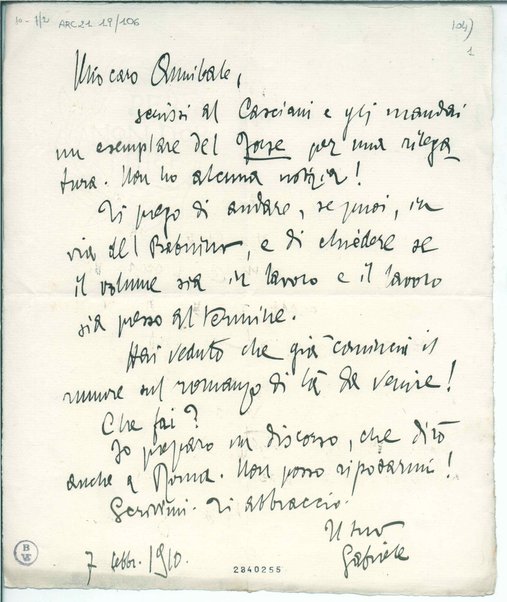 10 - 7/2 ARC21 19/106
104)
1
Mio caro Annibale,
scrissi al Casciani e gli mandai
un esemplare del Forse per una rilega
tura. Non ho alcuna notizia!
Ti prego di andare, se puoi, in
via del Babuino, e di chiedere se
il volume sia in lavoro e il lavoro
sia presso al termine.
Hai veduto che già comincia il
rumore sul romanzo di là da venire!
Che fai?
Io preparo un discorso, che dirò
anche a Roma. Non posso riposarmi!
Scrivimi. Ti abbraccio.
Il tuo
Gabriele
7 febbr. 1910.
2840255